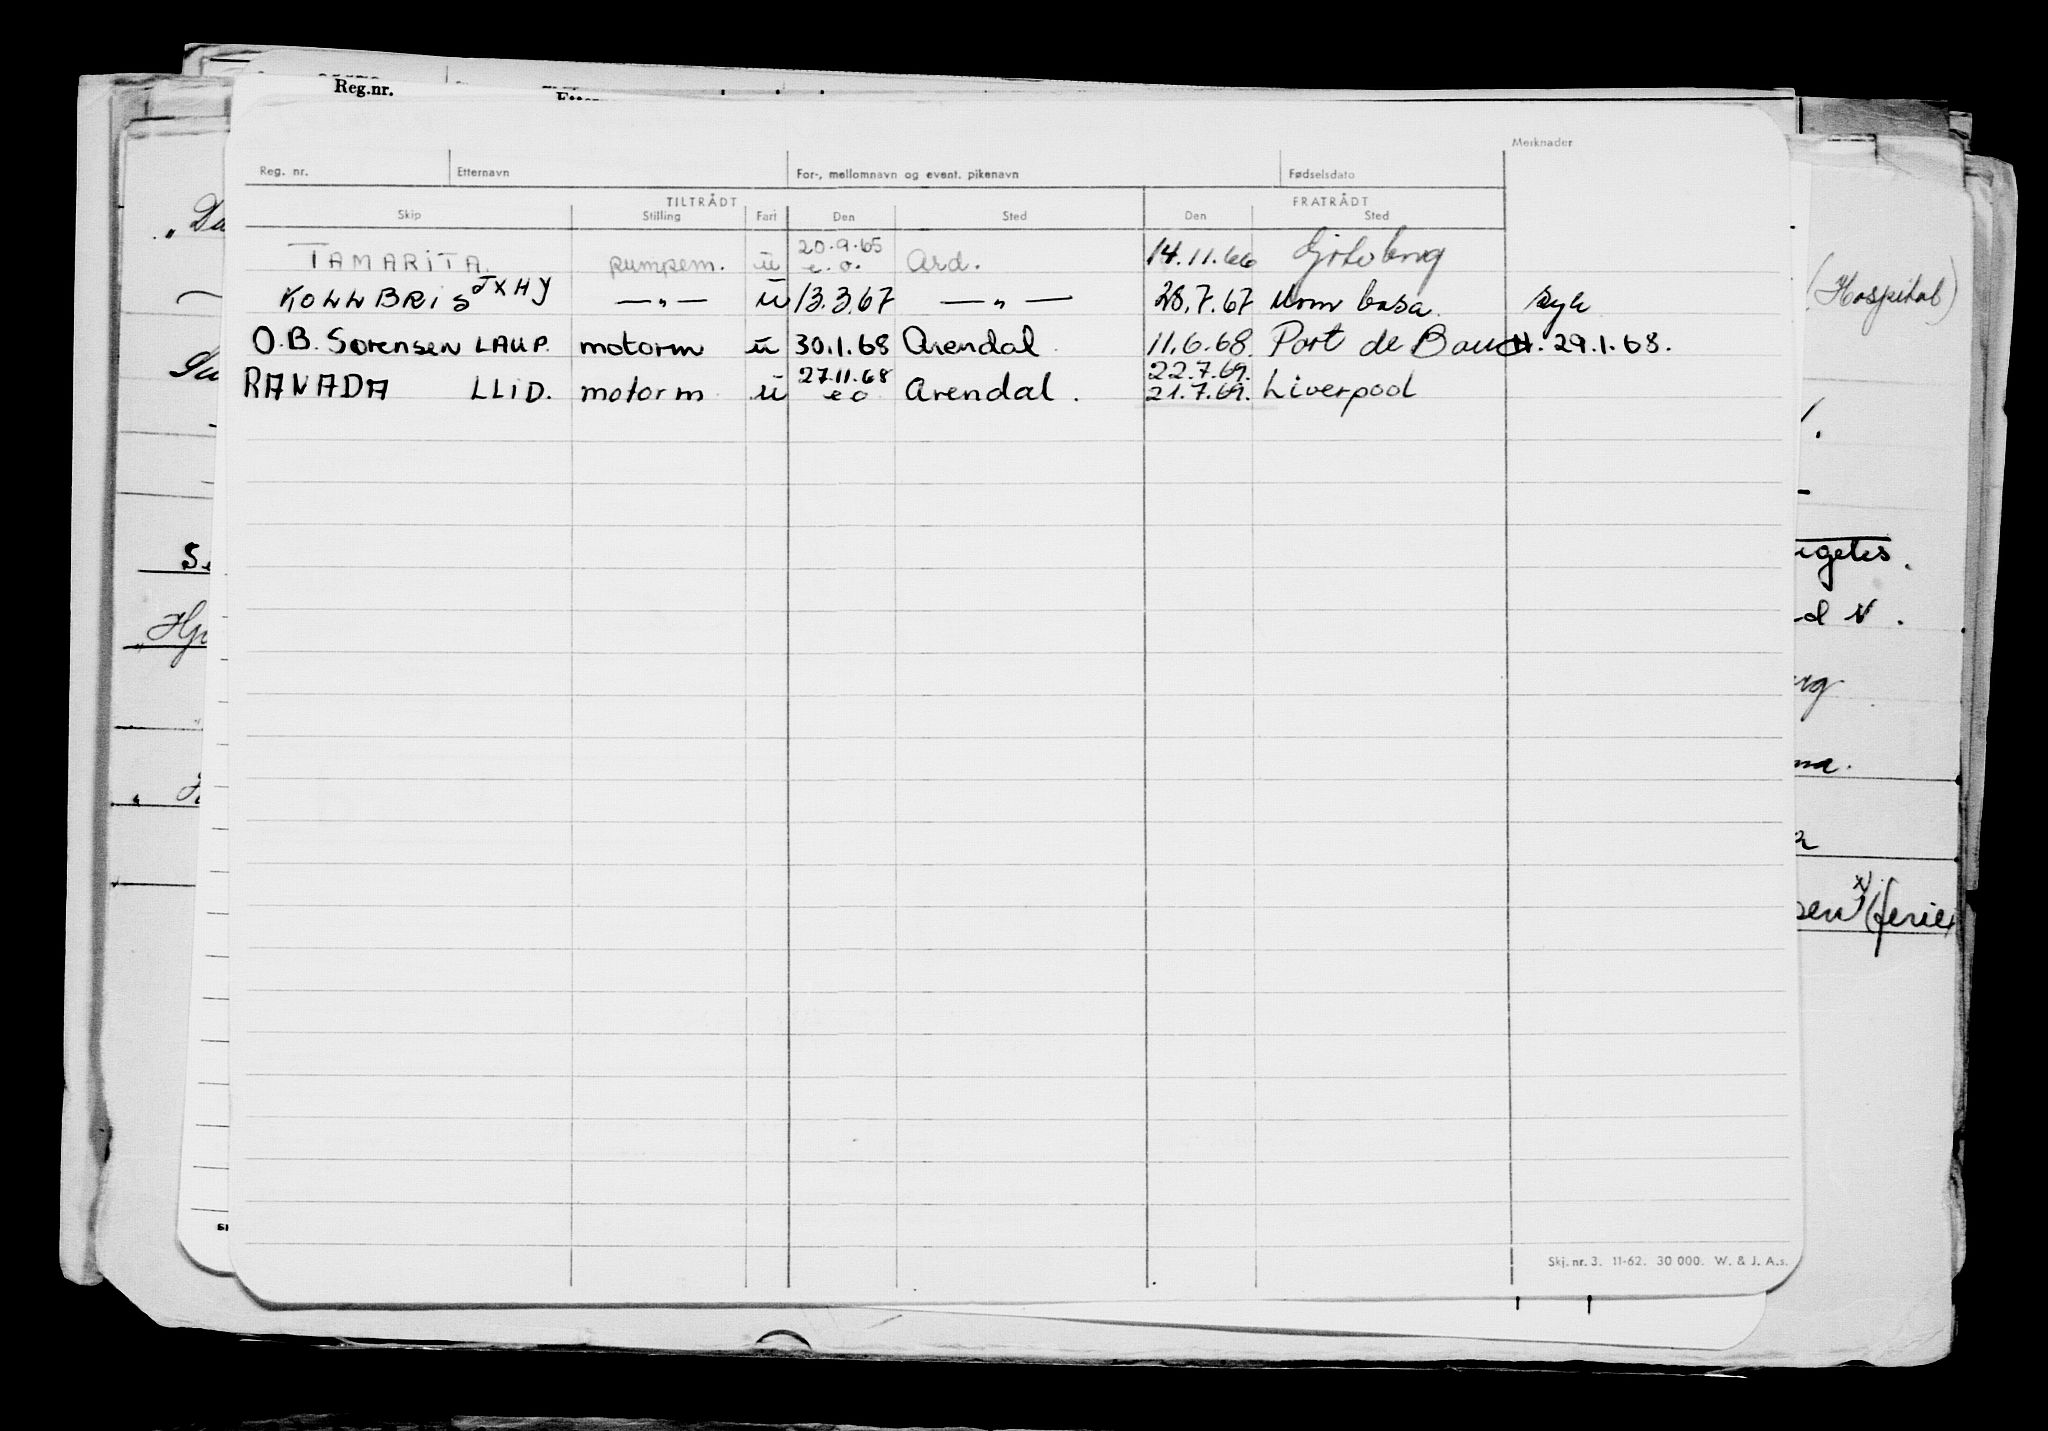 Reg.nr.
Merknader
Reg. nr. Etternavn For-, mellomnavn og event. pikenavn Fødselsdato
TILTRÅDT FRATRÅDT
Skip Stilling Fart Den Sted Den Sted
TAMARITA pumpem. u 20.9.65 e.o. Ard. 14.11.66 Göteborg (Hospital)
KOLLBRIS JXHY —"— u 13.3.67 —"— 28.7.67 syk
O.B. Sørensen LAUP. motorm u 30.1.68 Arendal 11.6.68. Port de Bouc H. 29.1.68.
RANADA LLID. motorm u 27.11.68 eo Arendal. 22.7.69. 21.7.69. Liverpool
(ferie)
Skj. nr. 3. 11-62. 30 000. W. & J. A.s.